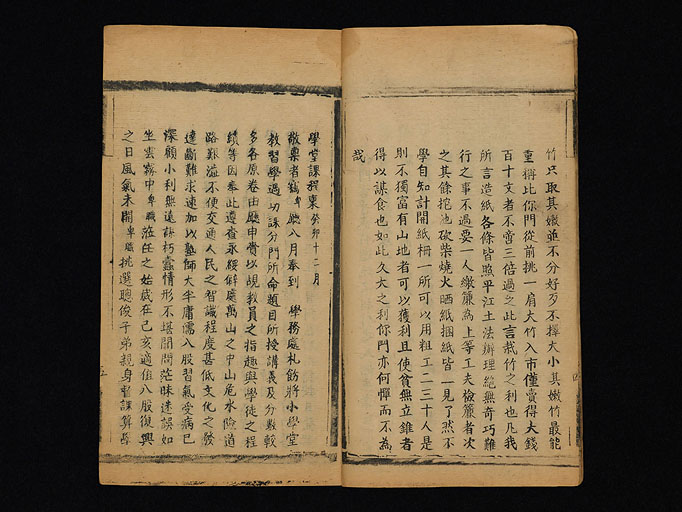 竹只取其嫩並不分好歹不擇大小其嫩竹最能
重稱比你門從前挑一肩大竹入市僅賣得大錢
百十文者不啻三倍過之此言栽竹之利也凡我
所言造紙各條皆照平江土法辦理絕無奇巧難
行之事不過要一人繳簾為上等工夫檢簾者次
之其餘挖池砍柴燒火晒紙捆紙皆一見了然不
學自知計開紙柵一所可以用粗工二三十人是
則不獨富有山地者可以獲利且使貧無立錐者
得以謀食也如此久大之利你門亦何憚而不為
哉
學堂課程稟 癸卯十二月
敬稟者竊卑廳八月奉到 學務處札飭將小學堂
教習學過功課分門所命題目所授講義及分數較
多各原卷由廳申賫以覘教員之指趣與學徒之程
績等因奉此遵查永綏僻處萬山之中山危水險道
路艱滋不便交通人民之智識程度甚低文化之發
達斷難求速加以塾師大半庸儒八股習氣受病已
深顧小利無遠謀朽蠹情形不堪聞問茫昧迷誤如
坐雲霧中卑職蒞任之始歲在己亥適值八股復興
之日風氣未開卑職挑選聰俊子弟親身督課算學